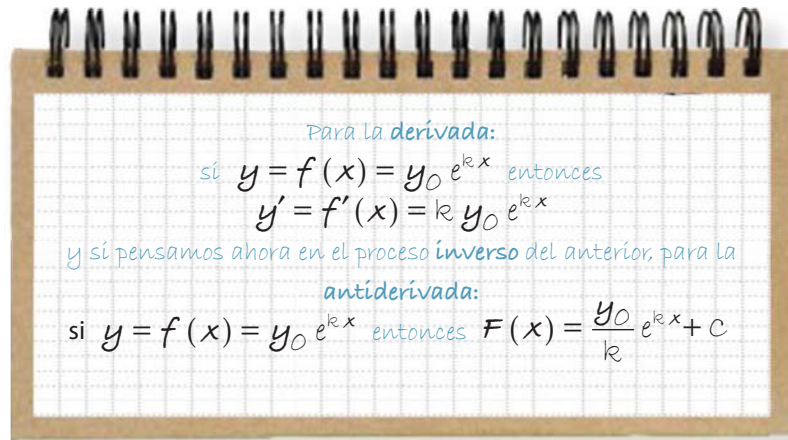 Para la derivada:
si y = f (x) = y₀ e^{kx} entonces
y′ = f′ (x) = k y₀ e^{kx}
y si pensamos ahora en el proceso inverso del anterior, para la
antiderivada:
si y = f (x) = y₀ e^{kx} entonces F (x) = y₀/k e^{kx} + C